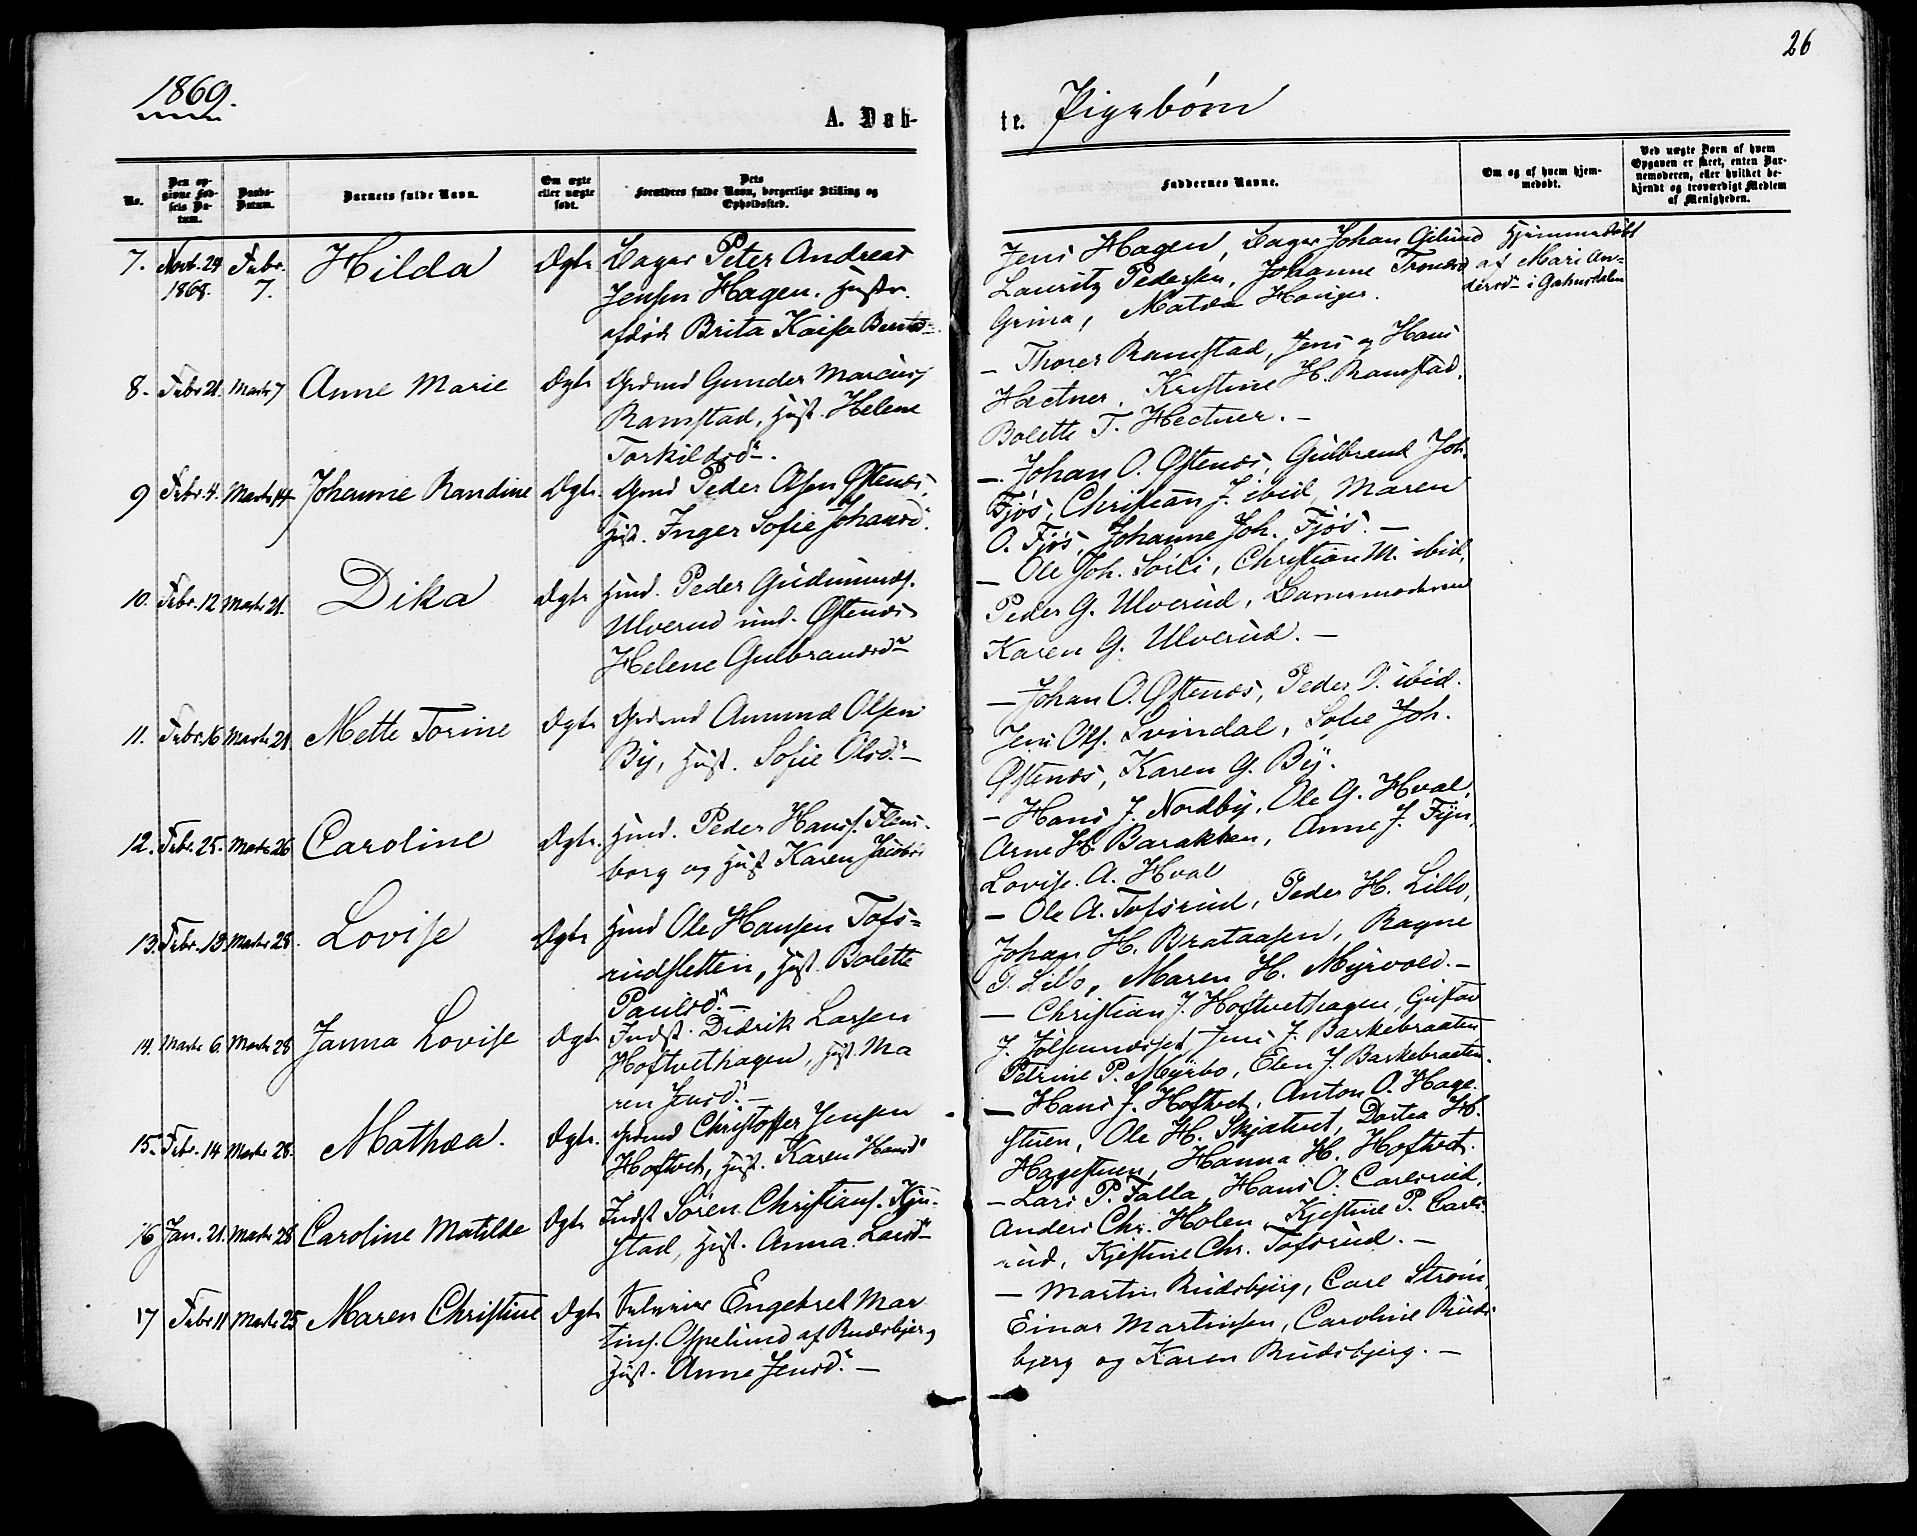 26
1869.
A. Døb-
te. Pigebörn
No.
Den op-
givne Fød-
sels Da-
tum.
Daabs-
Datum.
Barnets fulde Navn.
Om ægte
eller uægte
født.
Dets
Forældres fulde Navn, borgerlige Stilling og
Opholdssted.
Faddernes Navne.
Om og af hvem hjem-
medøbt.
Ved uægte Børn af hvem
Opgaven er skeet, enten Bar-
nemoderen, eller hvilket be-
kjendt og troværdigt Medlem
af Menigheden.
7. Novb. 24 1868. Febr. 7. Hilda Ægte Bager Peter Andreas
Jensen Hagen. Hustr.
afdöd Brita Kaisa
Jens Hagen, Bager Johan
Lauritz Pedersen, Johanne
Grina, Matea Hanger.
Hjemmedöbt
af Mari An-
dersd. i
8. Febr 21. Marts 7 Anne Marie Ægte Grdmd Gunder Marcus
Ramstad, Hust. Helene
Torkildsd.
- Thorer Ramstad, Jens og Hans
Hectner, Kristine H. Ramstad,
Bolette T. Hectner. -
9 Febr. 4. Marts 14 Johanne Randine Ægte. Peder Olsen Östenæs,
Hust. Inger Sofie Johansd.
- Johan O. Östenæs, Gulbrand Joh.
Fjös, Christian J. ibid, Maren
O. Fjös, Johanne Joh. Fjös. -
10. Febr. 12 Marts 21. Dika Ægte Hmd. Peder Gudmunds.
Ulverud und. Östenæs
Helene Gulbrandsd
- Ole Joh. Sörli, Christian M. ibid,
Peder G. Ulverud, Barnemoderen
Karen G. Ulverud. -
11. Febr. 16 Marts 21. Mette Torine Ægte Grdmd Amund Olsen
By, Hust. Sofie Olsd. -
- Johan O. Östenæs, Peder I. ibid.
Jens Ols. Svindal, Sofie Joh.
Östenæs, Karen G. By.
12. Febr. 25. Marts 26 Caroline Ægte. Hmd. Peder Hans. Flens-
borg og Hust Karen Jacobsd
- Hans J. Nordby, Ole G. Hval,
Arne H. Barakken, Anne J.
Lovise. A. Hval
13. Febr. 13 Marts 28. Lovise Ægte Hmd Ole Hansen Tofs-
rudsletten, Hust. Bolette
Paulsd. -
- Ole A. Tofsrud, Peder H. Lillo,
Johan H. Brataasen, Ragne
P. Lillo, Maren H. Myrvold. -
14. Marts 6. Marts 28 Janna Lovise Ægte Indst. Didrik Larsen
Hoftvethagen, Hust. Ma
ren Jensd. -
- Christian J. Hoftvethagen, Gustav
J. Jens J. Barkebraaten
Petrine P. Myrbo, Elen J. Barkebraaten.
15. Febr. 14 Marts 28. Mathea. Ægte. Grdmd Christoffer Jensen
Hoftvet, Hust. Karen Hansd
- Hans J. Hoftvet, Anton O. Hage-
stuen, Ole H. Skjætvet, Dortea H.
Hagestuen, Hanna H. Hoftvet.
16 Jan. 21. Marts 28 Caroline Matilde Ægte Indst Sören Christians. Kju-
stad, Hust. Anna Larsd
- Lars P. Falla, Hans O. Carlsrud,
Anders Chr. Holen, Kjestine P. Carls-
rud, Kjestine Chr. Tofsrud. -
17 Febr 11 Marts 25 Maren Christine Ægte Engebret Mar
tins. Ospelund af Rudsbjerg
Hust. Anne Jensd. -
- Martin Rudsbjerg, Carl Ström,
Einar Martinsen, Caroline Ruds-
bjerg og Karen Rudsbjerg. -